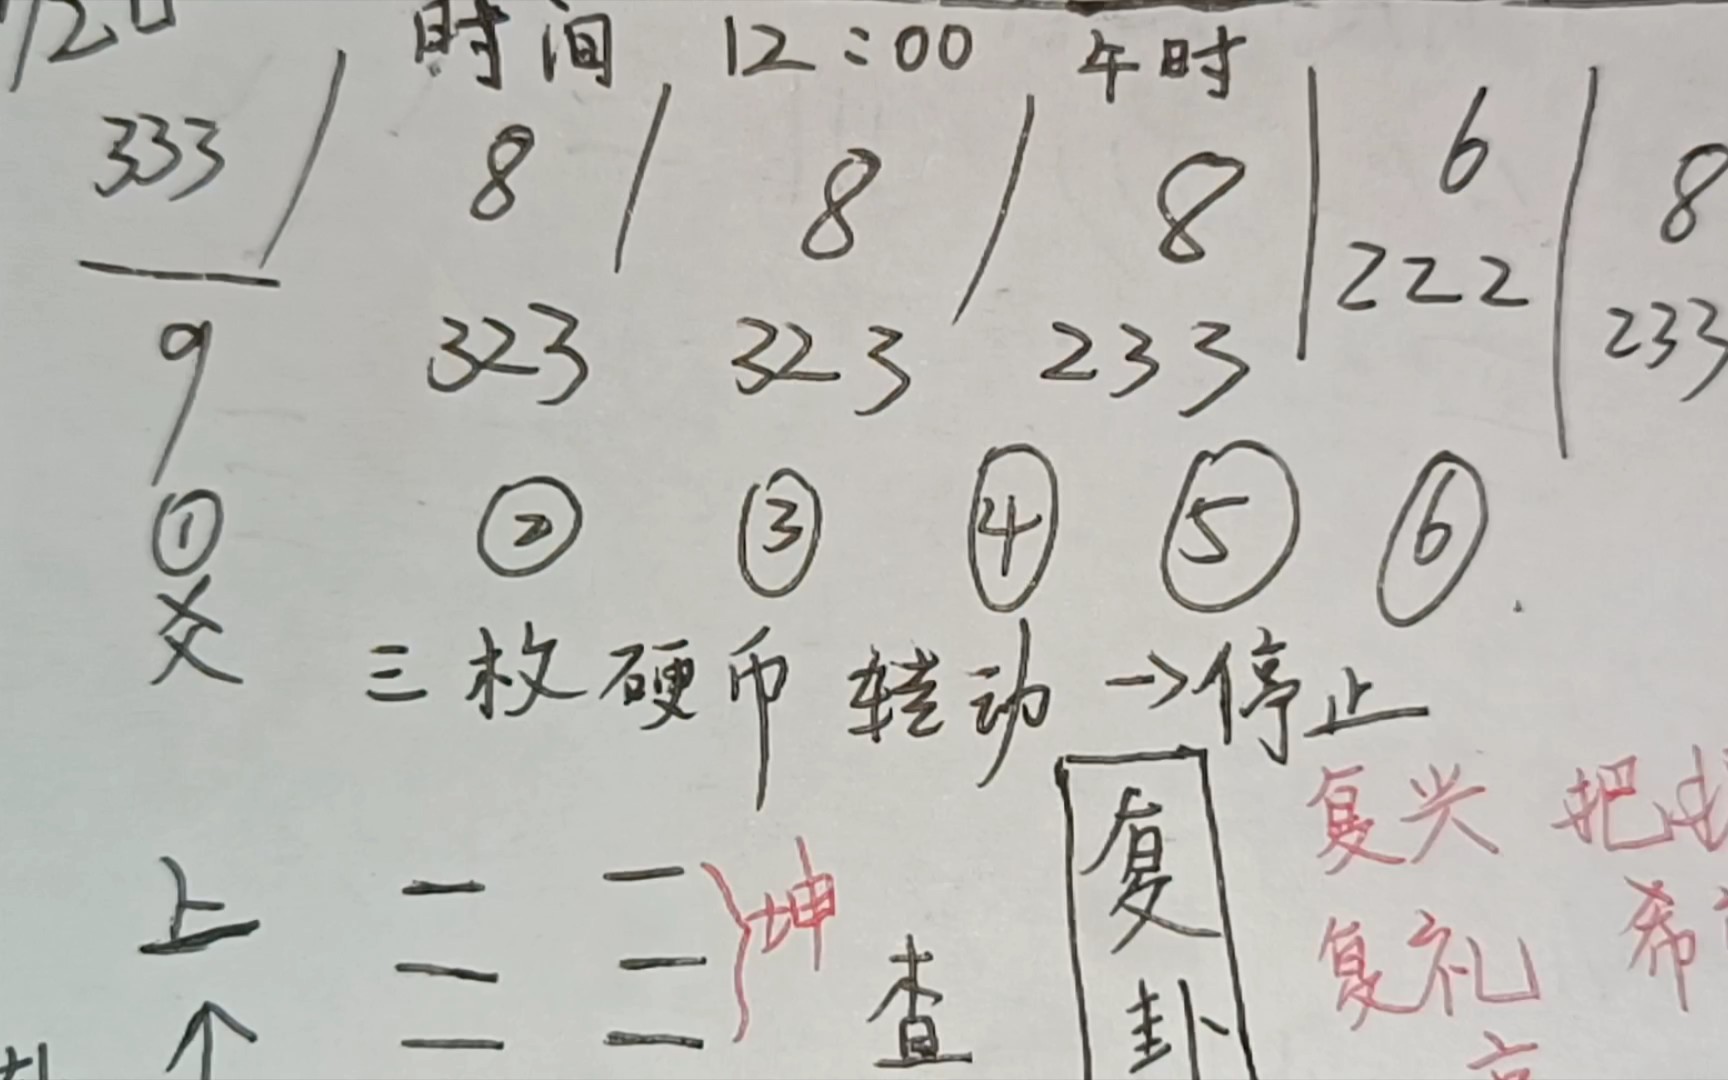 时间 12:00 午时
333 / 8 / 8 / 8 | 6 | 8
9 323 323 233 222 233
① ② ③ ④ ⑤ ⑥
爻 三枚硬币转动→停止
复兴 把
上 坤 复 希
复礼
↑ 查 卦